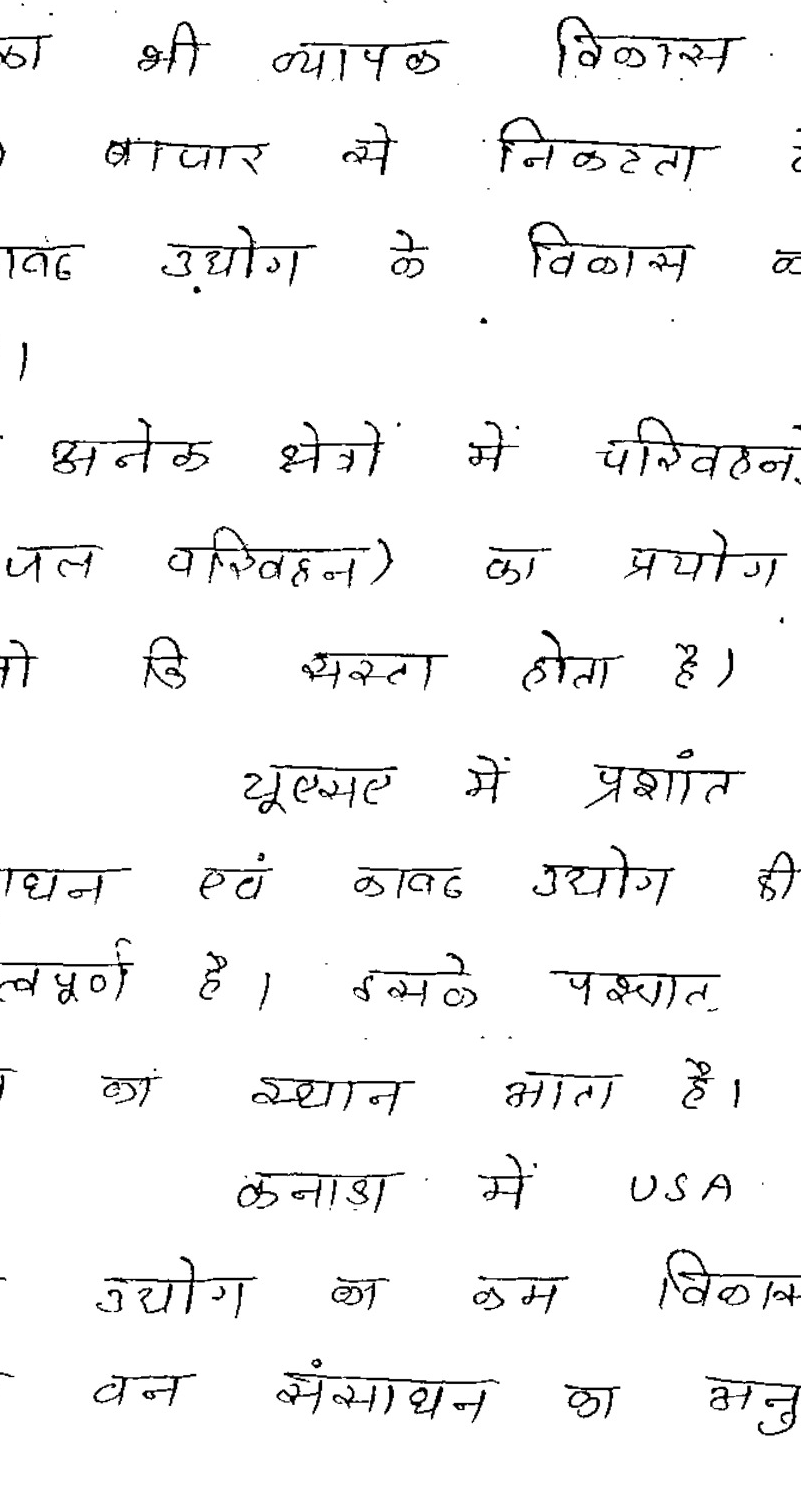 का भी व्यापक विकास
बाजार से निकटता
उद्योग के विकास
।
अनेक क्षेत्रों में परिवहन
जल परिवहन) का प्रयोग
जो कि सस्ता होता है।
यूएसए में प्रशांत
एवं काष्ठ उद्योग ही
है। इसके पश्चात
का स्थान आता है।
कनाडा में USA
उद्योग का कम विकास
वन संसाधन का